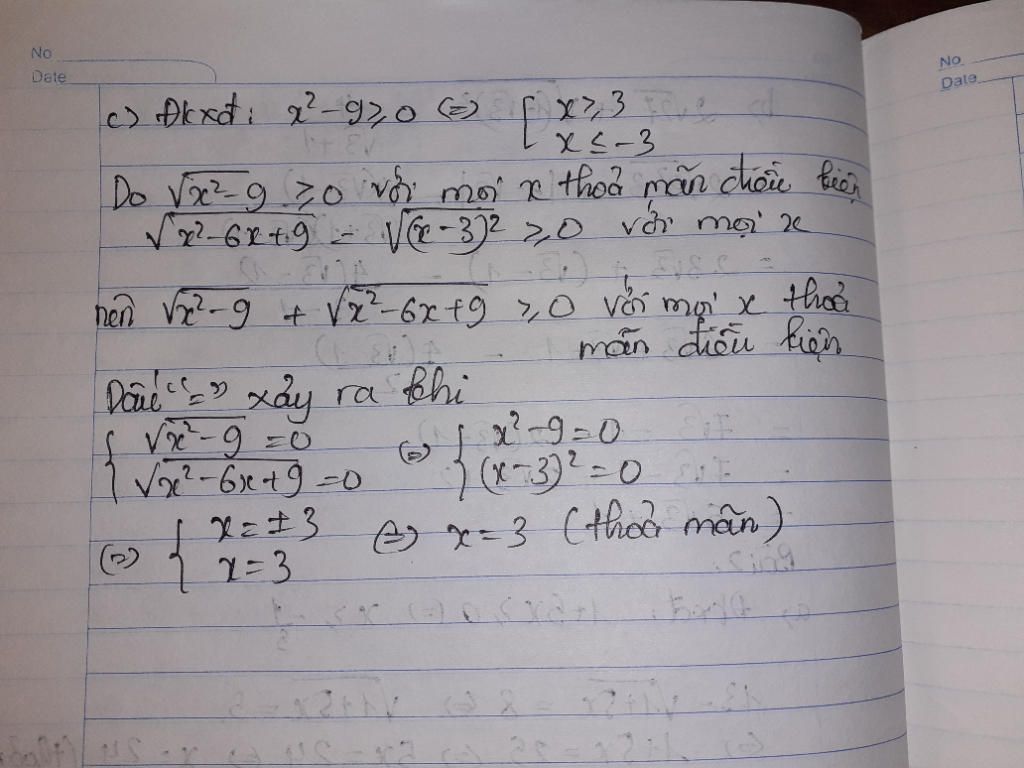 No
Date
No
Date
c) Đkxđ: x² - 9 ≥ 0 (=) [ x ≥ 3
x ≤ -3
Do √x² - 9 ≥ 0 với mọi x thoả mãn điều kiện
√x² - 6x + 9 = √(x - 3)² ≥ 0 với mọi x
nên √x² - 9 + √x² - 6x + 9 ≥ 0 với mọi x thoả
mãn điều kiện
Dấu "=" xảy ra khi
{ √x² - 9 = 0 (=) { x² - 9 = 0
√x² - 6x + 9 = 0 (x - 3)² = 0
(=) { x = ±3 (=) x = 3 (thoả mãn)
x = 3